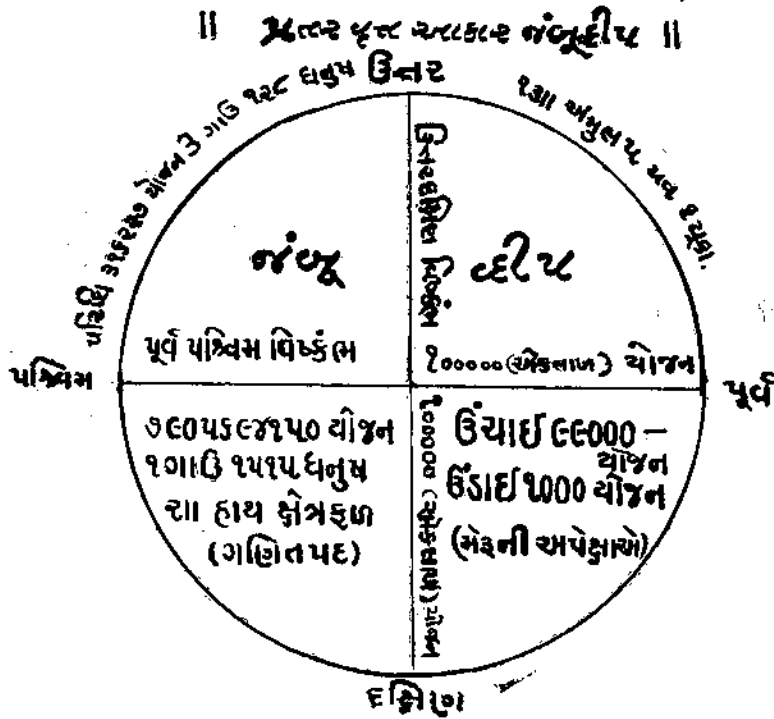 ॥ પ્રતર વૃત્ત આકાર જંબૂદ્વીપ ॥
ઉત્તર
પરિધિ ૩૧૬૨૨૭ યોજન ૩ ગાઉ ૧૨૮ ધનુષ
૧૩॥ અંગુલ ૫ યવ ૧ યૂકા.
ઉત્તરદક્ષિણ વિષ્કંભ
જંબૂ દ્વીપ
પૂર્વ પશ્ચિમ વિષ્કંભ ૧૦૦૦૦૦ (એકલાખ) યોજન
પશ્ચિમ
પૂર્વ
૭૯૦૫૬૯૪૧૫૦ યોજન
૧ગાઉ ૧૫૧૫ ધનુષ
૨॥ હાથ ક્ષેત્રફળ
(ગણિતપદ)
૧૦૦૦૦૦ (એકલાખ) યોજન
ઉંચાઈ ૯૯૦૦૦ –
યોજન
ઉંડાઈ ૧૦૦૦ યોજન
(મેરૂની અપેક્ષાએ)
દક્ષિણ